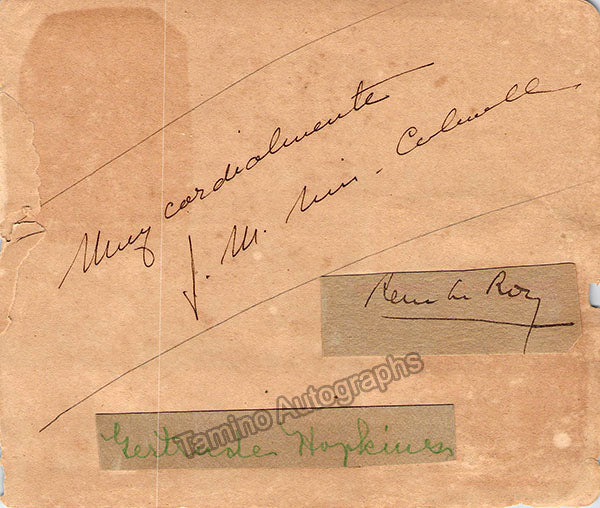 Muy cordialmente
J. M. Nin - Culmell
Rene Le Roy
Gertrude Hopkins
Tamino Autographs